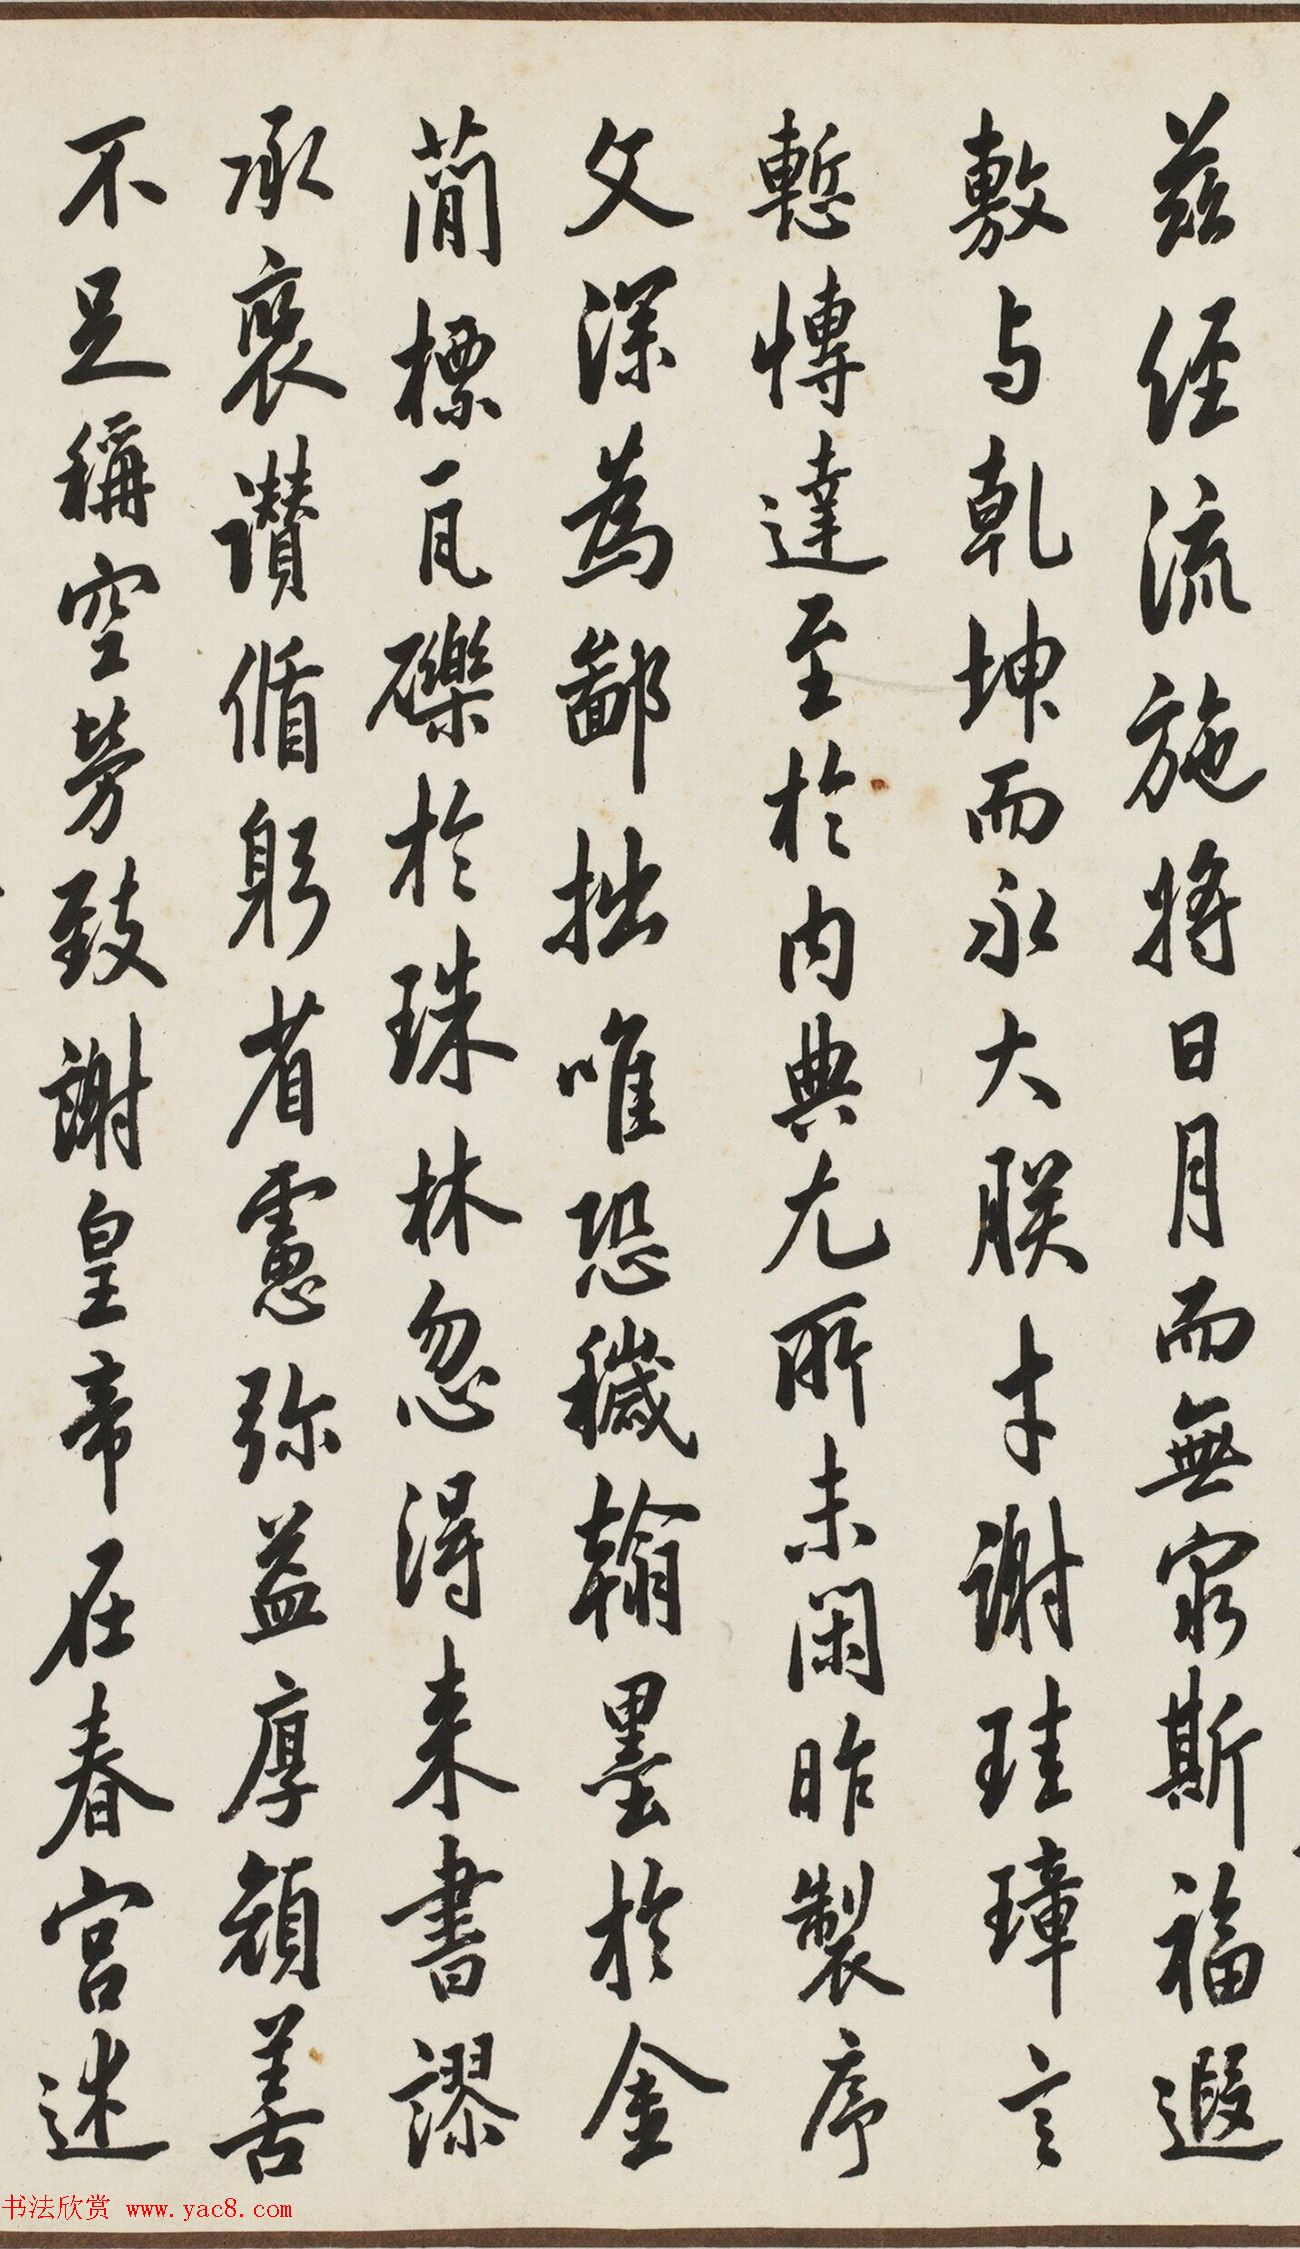 兹经流施将日月而無窮斯福遐
敷与乾坤而永大朕才謝珪璋言
慙愽達至於内典尤所未閑昨製序
文深為鄙拙唯恐穢翰墨於金
蕳標瓦礫於珠林忽得来書謬
承褒讃循躬省慮弥益厚顔善
不足稱空勞致謝皇帝在春宮述
书法欣赏 www.yac8.com